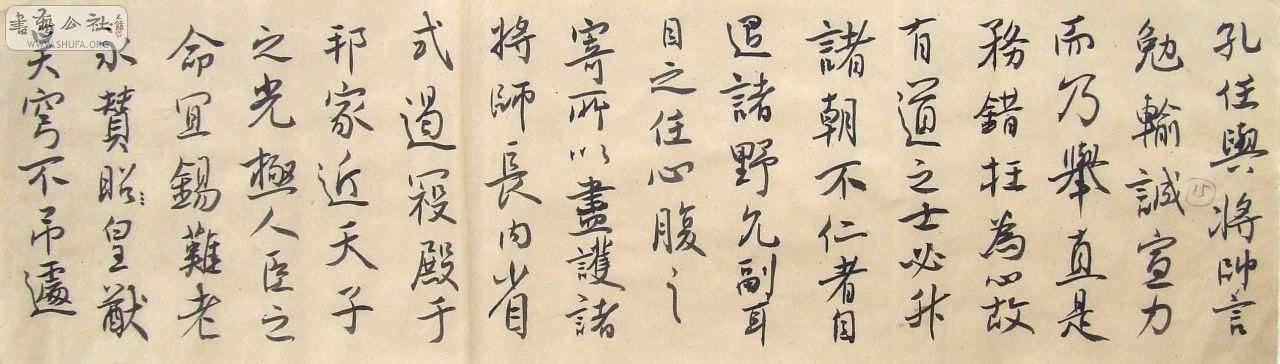 孔任與將帥言
勉輸誠宣力
而乃舉直是
務錯枉為心故
有道之士必升
諸朝不仁者自
退諸野允副耳
目之任心腹之
寄所以盡護諸
將師長内省
式遏寇殿于
邦家近天子
之光極人臣之
命宜錫難老
永贊昭皇猷
昊穹不弔遽
15
書藝公社
WWW.SHUFA.ORG